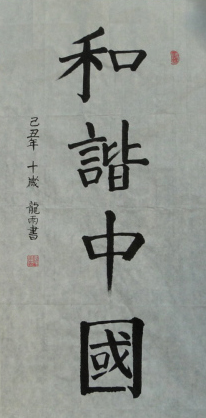 和諧中國
己丑年 十歲 龍雨書